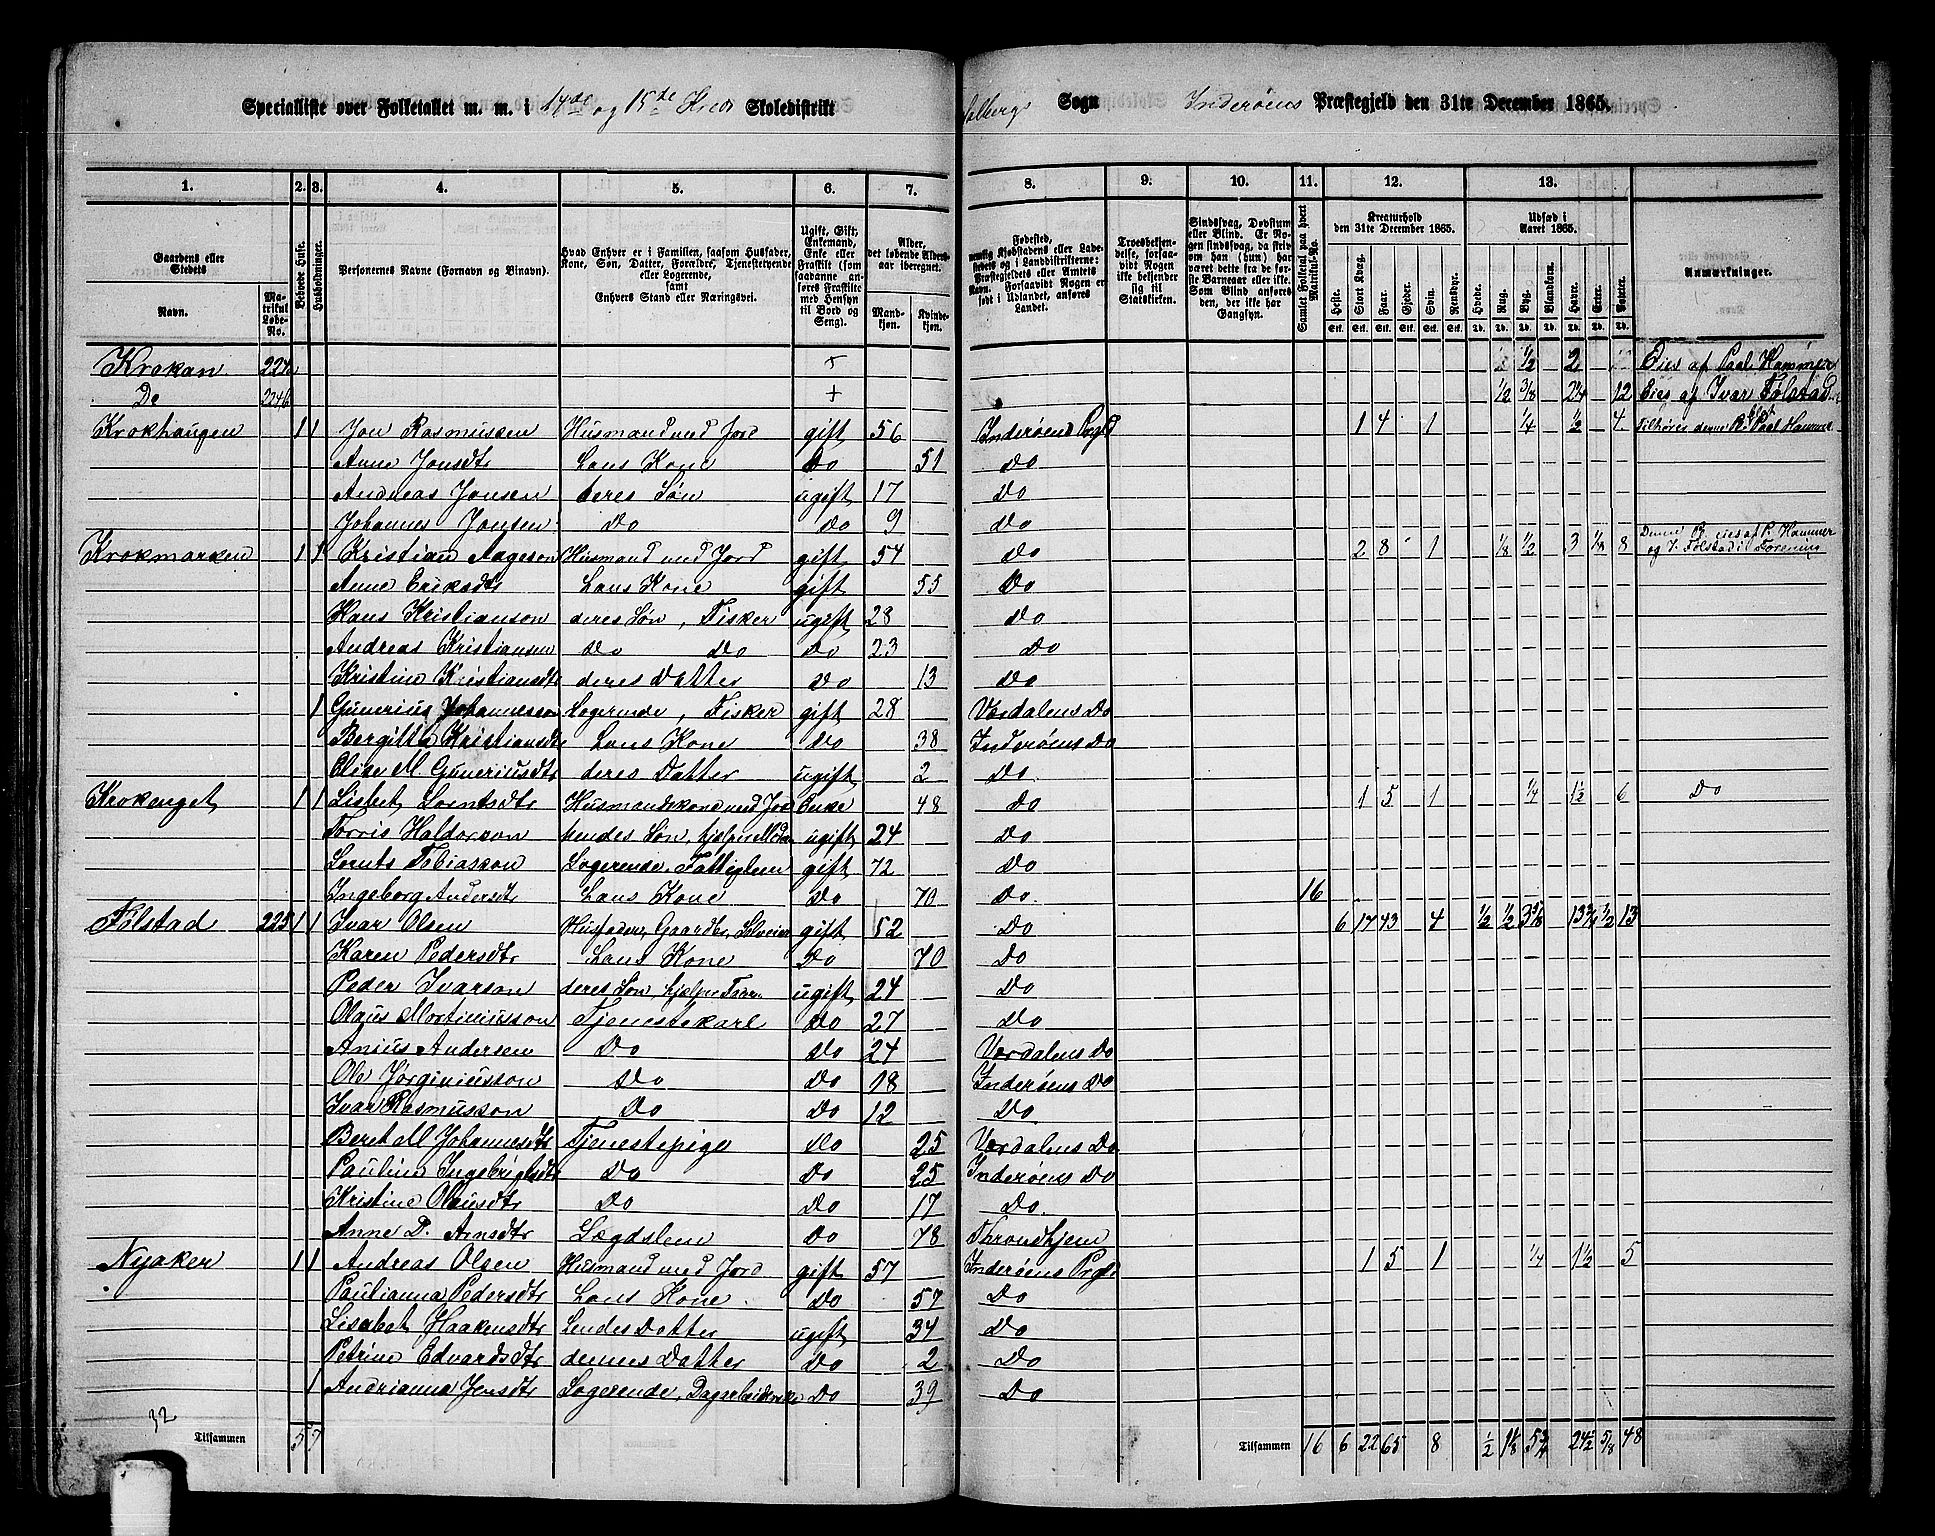 Specialliste over Folketallet m. m. i 14de og 15de Kreds Skoledistrikt
Salbergs Sogn Inderøens Præstegjeld den 31te December 1865.
1. 2. 3. 4. 5. 6. 7. 8. 9. 10. 11. 12. 13.
Gaardens eller Stedets
Navn. Matrikul Løbe-No.
Beboede Huse.
Husholdninger.
Personernes Navne (Fornavn og Binavn).
Hvad Enhver er i Familien, saasom Husfader, Kone, Søn, Datter, Forældre, Tjenestetyende eller Logerende, samt Enhvers Stand eller Næringsvei.
Ugift, Gift, Enkemand, Enke eller Fraskilt (som saadanne anføres Fraskilte med Hensyn til Bord og Seng).
Alder, det løbende Aldersaar iberegnet.
Mandkjøn. Kvindekjøn.
Troesbekjendelse, forsaavidt Nogen ikke bekjender sig til Statskirken.
Sindssvag, Døvstum eller Blind. Er Nogen sindssvag, da skrives om han (hun) har været dette fra de første Barneaar eller ikke. Som Blind anføres den, der ikke har Gangsyn.
Samlet Folketal paa hvert Matrikul-No.
Kreaturhold den 31te December 1865.
Heste. Stort Kvæg. Faar. Gjeder. Svin. Rensdyr.
Udsæd i Aaret 1865.
Hvede. Rug. Byg. Blandkorn. Havre. Erter. Poteter.
Anmærkninger.
Krokan 224a + 1/2 2 Eies af Paal Hammer
Do 224b + 1/2 3/8 2 1/4 12 Eies af Ivar Følstad
Krokhaugen 1 1 Jon Rasmussen Husmand med Jord gift 56 Inderøens Prgd 1 4 1 1/4 1/2 4
Anne Jonsdtr Hans Kone Do 51 Do
Andreas Jonsen deres Søn ugift 17 Do
Johannes Jonsen Do Do 9 Do
Krokmarken 1 1 Kristian Aageson Husmand med Jord gift 54 Do 2 8 1 1/8 1/2 3 1/8 8 Denne P. eies af P. Hammer og I. Følstad i Forening
Anne Eriksdtr Hans Kone gift 55 Do
Hans Kristianson deres Søn, Fisker ugift 28 Do
Andreas Kristiansen Do Do Do 23 Do
Kristine Kristiansdtr deres Datter Do 13 Do
1 Gunerius Johannesson Logerende, Fisker gift 28 Værdalens Do
Bergitta Kristiansdtr Hans Kone Do 38 Inderøens Do
Elise M Guneriusdtr deres Datter ugift 2 Do
Krokenget 1 1 Lisbet Lorntsdtr Husmandskone med Jord Enke 48 Do 1 5 1 1/4 1 1/2 6 Do
Torris Haldorson hendes Søn, hjælper Moder ugift 24 Do
Lornts Tobiasson Logerende, Fattiglem gift 72 Do
Ingeborg Andersdt Hans Kone Do 70 Do 16
Følstad 225 1 1 Ivar Olsen Husfader, Gaardbr, Selveier gift 52 Do 6 17 43 4 1/2 1/2 3 5/8 13 3/4 1/2 13
Karen Pedersdtr Hans Kone Do 70 Do
Peder Ivarson deres Søn, hjælper Fader ugift 24 Do
Olaus Mortinusson Tjenestekarl Do 27 Do
Anius Andersen Do Do 24 Værdalens Do
Ole Jørginiusson Do Do 18 Inderøens Do
Ivar Rasmusson Do Do 12 Do
Beret M Johannesdtr Tjenestepige Do 25 Værdalens Do
Pauline Ingebrigtsdtr Do Do 25 Inderøens Do
Kristine Olausdtr Do Do 17 Do
Anne D. Arnsdtr Lægdslem Do 78 Throndhjem
Nyaker 1 1 Andreas Olsen Husmand med Jord gift 57 Inderøens Prgd 1 5 1 1/4 1 1/2 5
Paulianna Pedersdtr Hans Kone Do 57 Do
Lisabet Haakensdtr hendes Datter ugift 34 Do
Petrine Edvardsdtr dennes Datter Do 2 Do
1 Andrianna Jensdtr Logerende, Do 39 Do
32
Tilsammen 5 7
Tilsammen 16 6 22 65 8 1/2 1 1/8 5 3/4 24 1/2 5/8 48